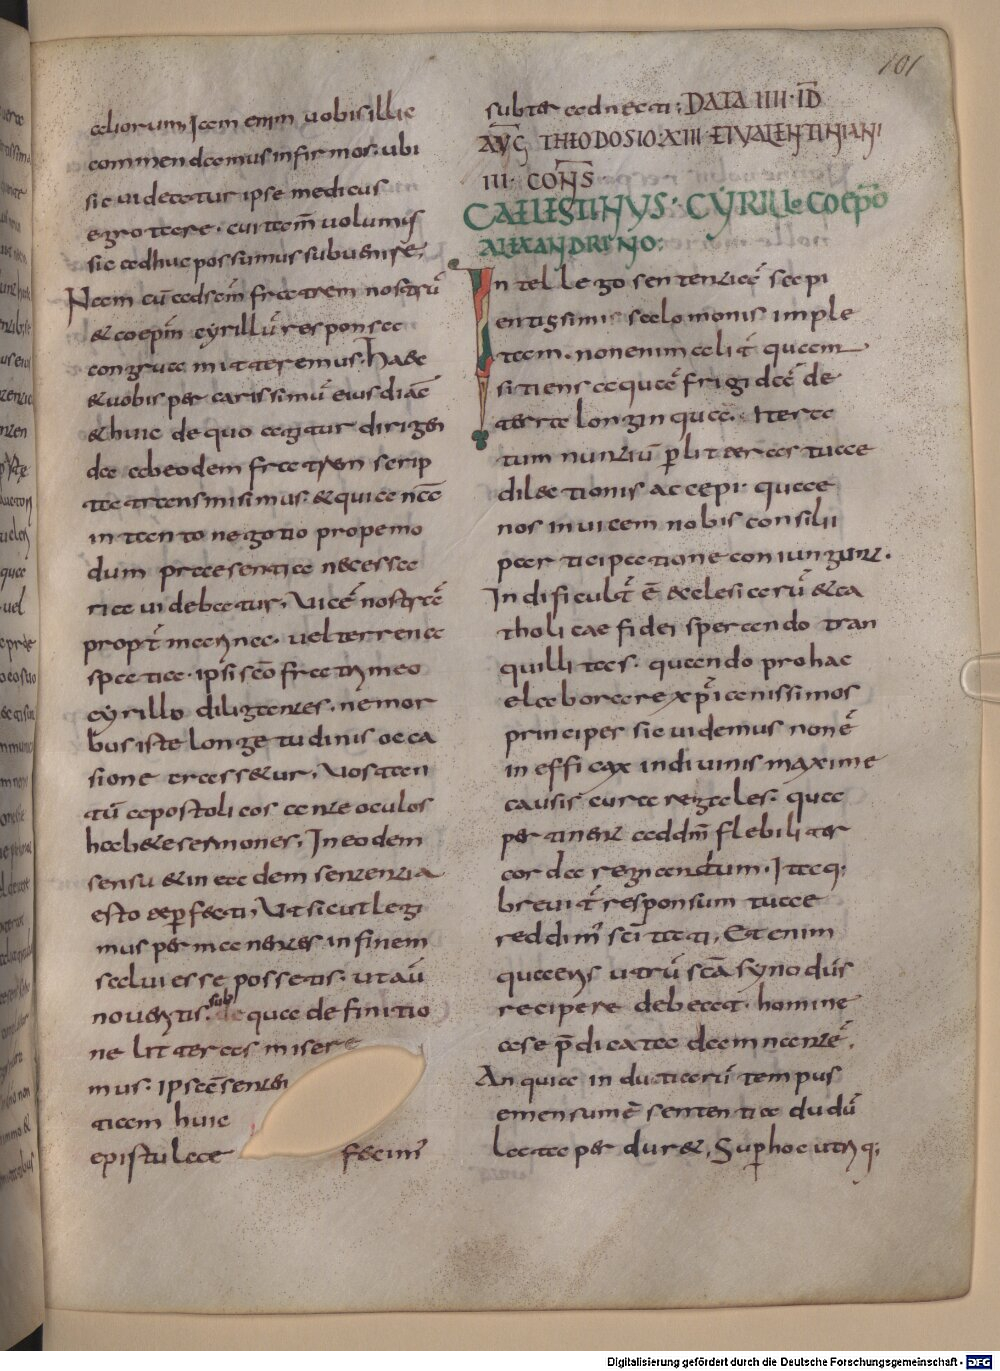 101
aliorum; Iam enim uobis illic
commendamus infirmos. ubi
sic uidetatur ipse medicus
egrotare. cui tam̄ uolumus
sic adhuc possumus subuenire;
Nam cū ad scm̄ fratrem nostrū
& coepm̄ cyrillū responsa
congrua mitteremus. Haec
& uobis per carissimū eius diac̄
& huic de quo agitur dirigen
da ab eodem fratren scrip
ta transmisimus. & quia nc̄a
in tanto negotio propemo
dum praesentia necessa
ria uidebatur. Vicē nostrā
propt̄ marina. uel terrena
spatia. ipsi sc̄o fratri meo
cyrillo diligtanres. ne mor
bus iste longetudinis occa
sione crass&ur. Vos tan
tū apostolicos ante oculos
hab&e sermones. In eodem
sensu & in eadem sentenzia
esto & perfecti. Vt sicut leg
imus permanentes in finem
salui esse possetis. ut aū
nouertis. sub qua definitio
ne litteras misera
mus. Ipsā senten
tiam huic
epistulae fecim̄
subter adnecti; DATA IIII. ID
AVG THEODOSIO XIII ET VALENTINIANI
III. CONS
CAELESTINUS. CYRILLO COEPŌ
ALEXANDRINO:
Intellego sententiā sapi
entissimi salomonis imple
tam. non enim alit̄ quam
sitiens aquā frigidā de
terra longinqua. Itera
tum nuntiū p̄ litteras tuae
dilectionis accepi. quae
nos inuicem nobis consilii
participatione coniungunt.
In dificult̄ ē ecclesiarū & ca
tholicae fidei sperando tran
quillitas. quando pro hac
elaborare xp̄ianissimos
principes sic uidemus non ē
in efficax in diuinis maxime
causis cura regales. quae
pertinent ad dm̄ flebiliter
corda regiandum. Itaq;
breuit̄ responsum tuae
reddim̄ sc̄itati; Et enim
quaeris utrū sc̄a synodus
recipere debeat. homine
a se p̄dicata damnantē.
An quia induciarū tempus
emensum ē sententia dudū
lata perdur&; Super hoc utriq;
Digitalisierung gefördert durch die Deutsche Forschungsgemeinschaft - DFG